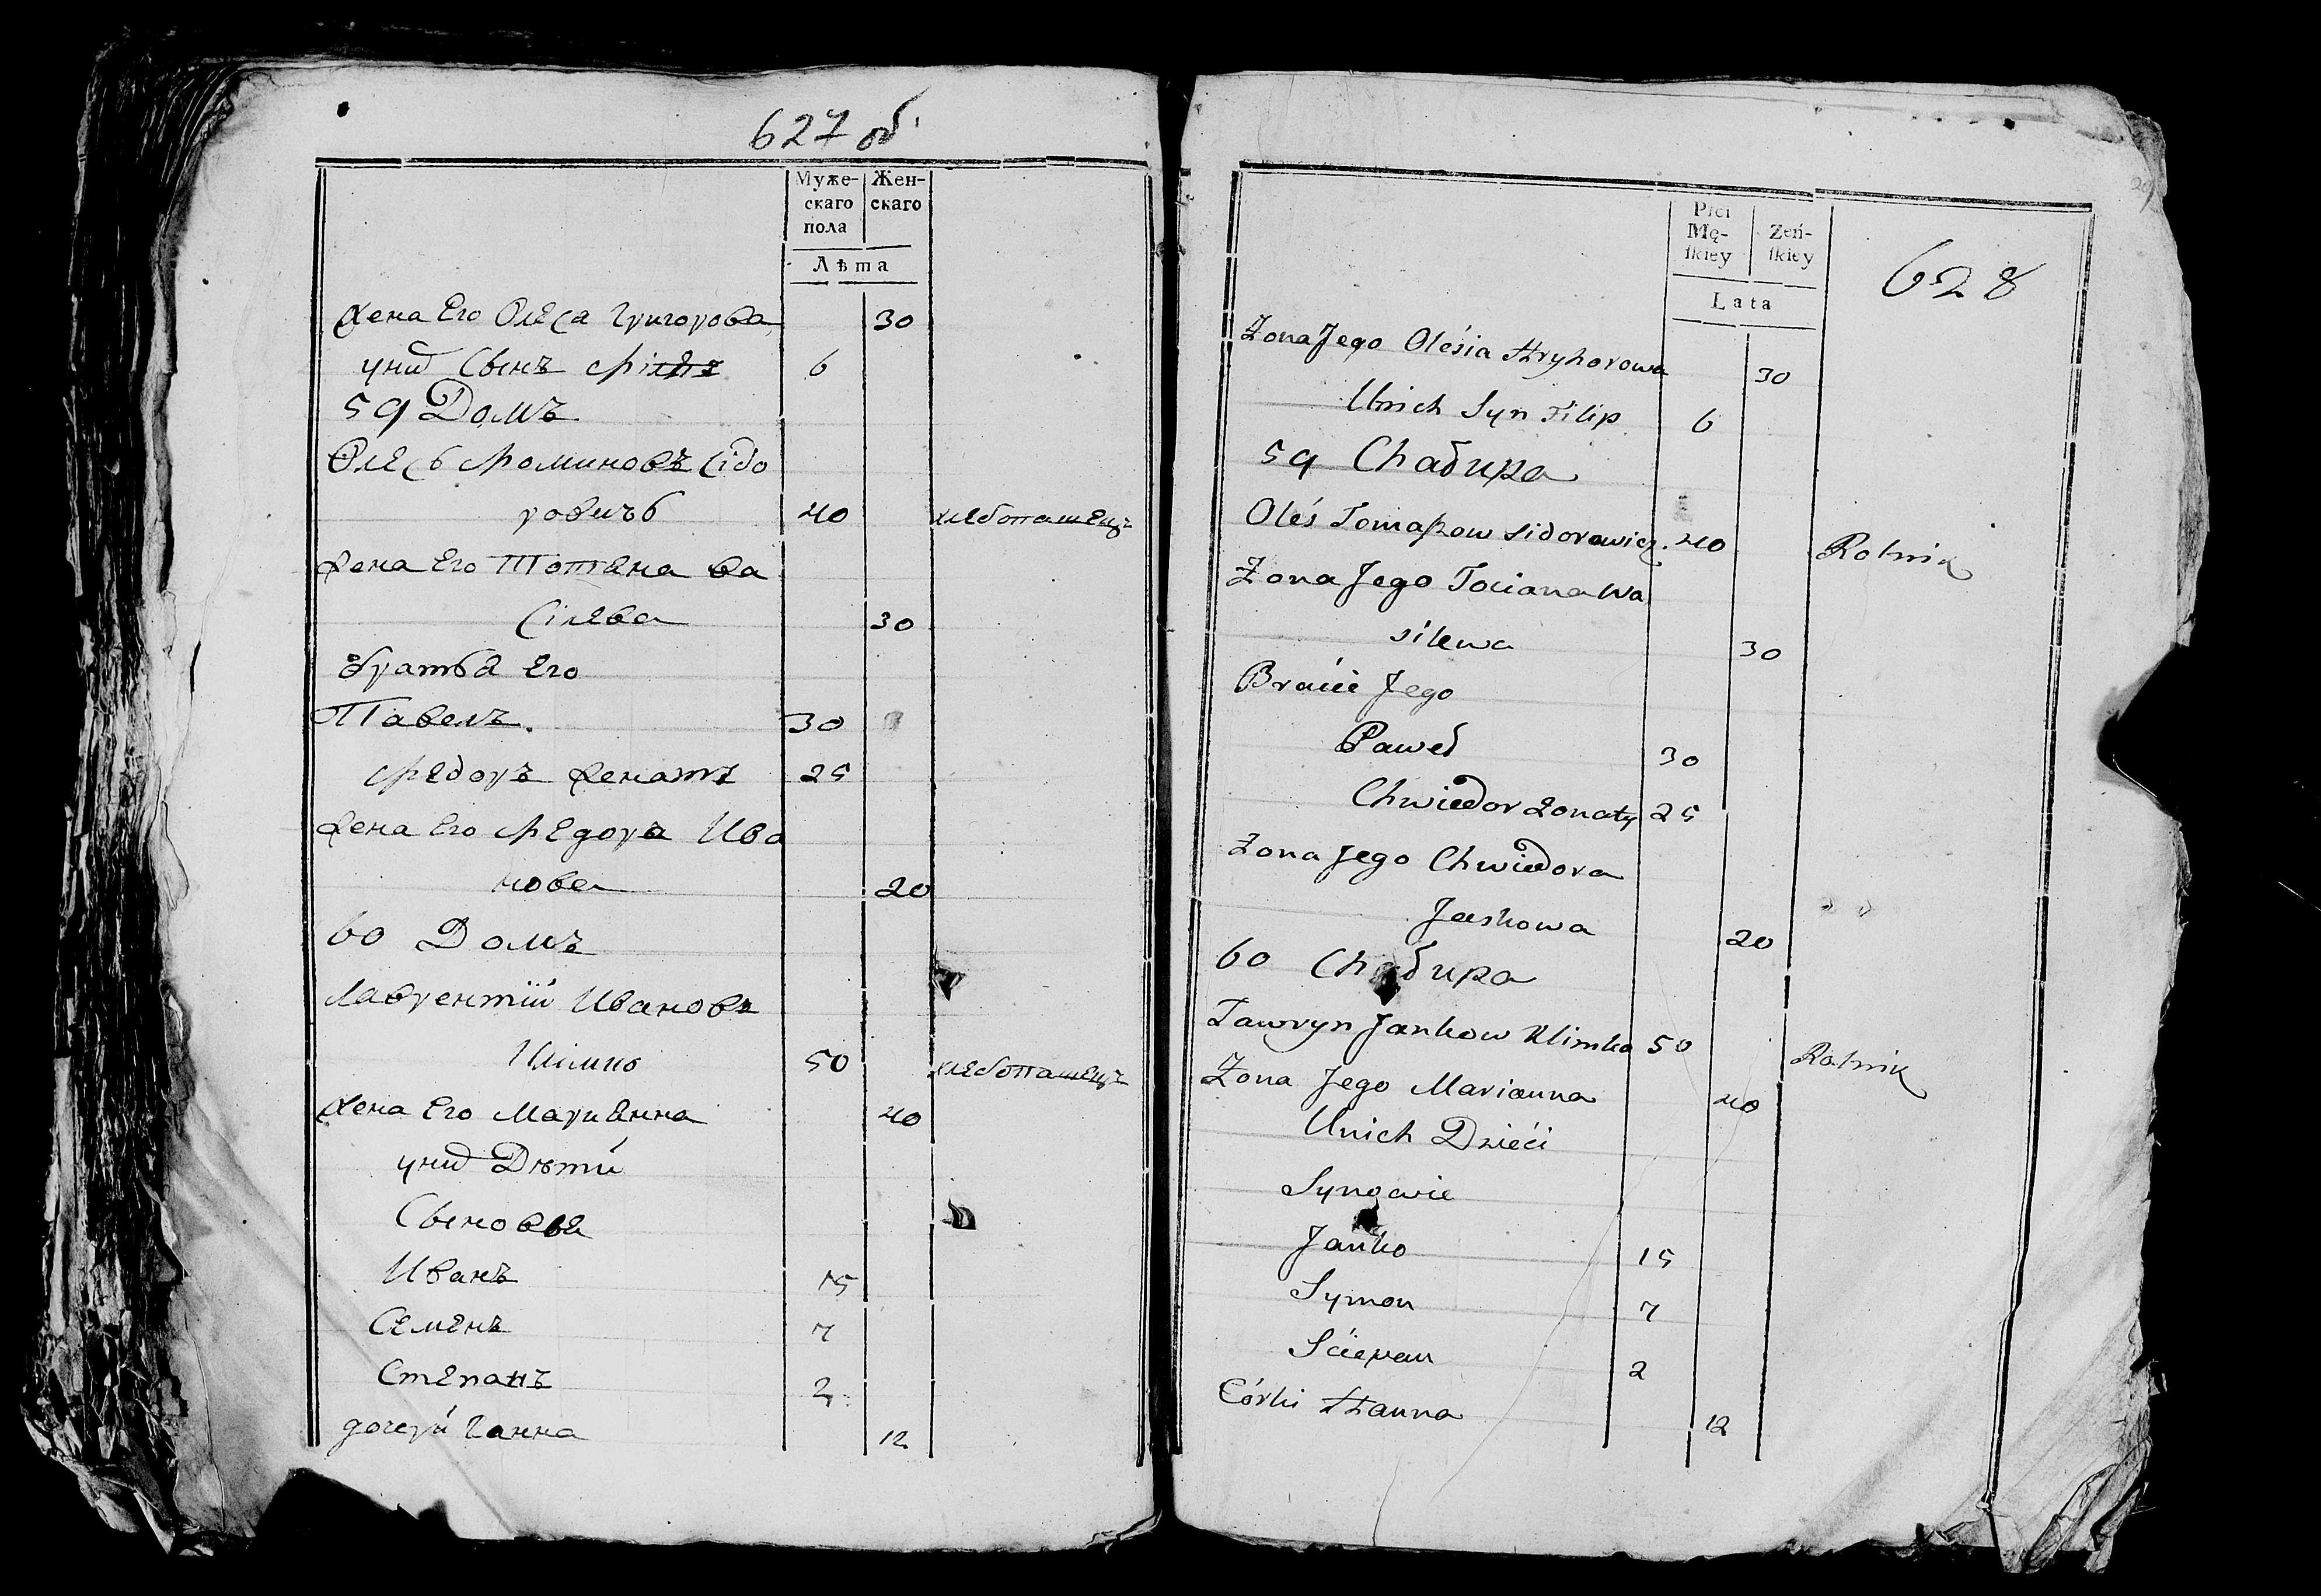 627 об.
Муже-
скаго
пола
Жен-
скаго
Лѣта
Жена Его Олеса Григорова 30
унид Сынъ Філіпъ 6
59 Домъ
Олесь Фоминовъ Сідо
ровичь 40 хлебопашецъ
Жена Его Тотяна Ва
сілева 30
братья Его
Павелъ 30
Федоръ женатъ 25
Жена Его Федора Ива
нова 20
60 Домъ
Лаврентій Ивановъ
Климко 50 хлебопашецъ
Жена Его Марианна 40
унид Дѣти
Сыновья
Иванъ 15
Семенъ 7
Степанъ 2
дочери Ганна 12
Płci
Mę-
ſkiey
Zeń-
ſkiey
Lata
628
Zona Jego Oleśia Hryhorowa 30
Unich Syn Filip 6
59 Chałupa
Oleś Tomaszow Sidorowicz 40 Rolnik
Zona Jego Tociana Wa
silewa 30
Bracie Jego
Paweł 30
Chwiedor Zonaty 25
Zona Jego Chwiedora
Jaskowa 20
60 Chałupa
Ławryn Jankow Klimko 50 Rolnik
Zona Jego Marianna 40
Unich Dzieći
Synowie
Janko 15
Symon 7
Sciepan 2
Córki Hanna 12